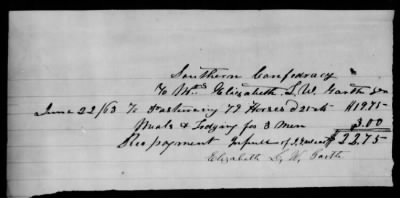 Southern Confederacy
To Mrs Elizabeth S. W. Garth Dr
June 22/63 To Pasturing 79 Horses @ 25cts $19.75
Meals & Lodging for 3 men 3.00
Rec payment in full of $22.75
Elizabeth S. W. Garth